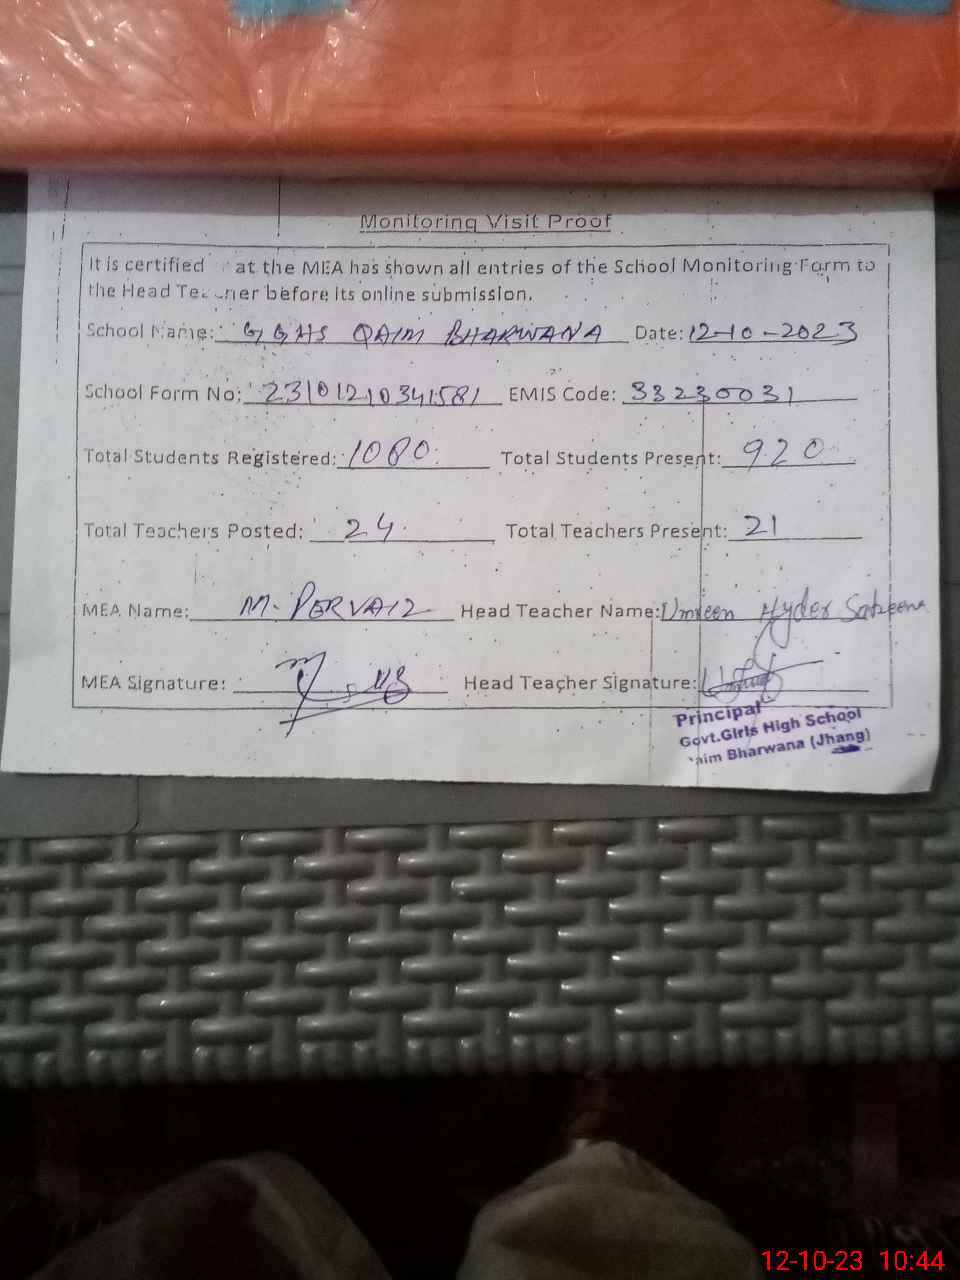 Monitoring Visit Proof
It is certified at the MEA has shown all entries of the School Monitoring Form to
the Head Teacher before its online submission.
School Name: GGHS QAIM BHARWANA Date: 12-10-2023
School Form No: 23101210341581 EMIS Code: 33230031
Total Students Registered: 1080 Total Students Present: 920
Total Teachers Posted: 24 Total Teachers Present: 21
MEA Name: M. PERVAIZ Head Teacher Name: Umreen Hyder Sakeena
MEA Signature: Head Teacher Signature:
Principal
Govt.Girls High School
aim Bharwana (Jhang)
12-10-23 10:44